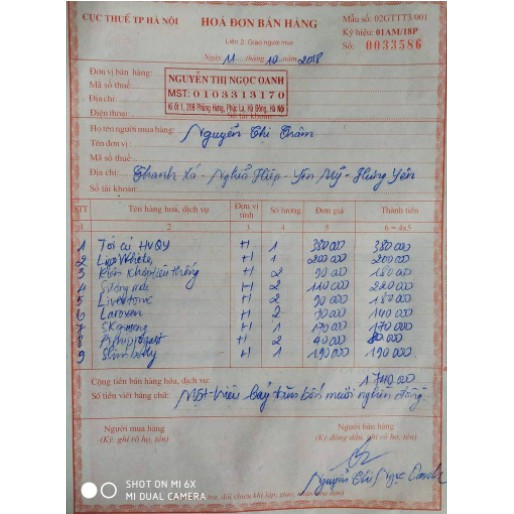 CỤC THUẾ TP HÀ NỘI
HOÁ ĐƠN BÁN HÀNG
Mẫu số: 02GTTT3/001
Liên 2: Giao người mua
Ký hiệu: 01AM/18P
Số: 0033586
Ngày 11 tháng 10 năm 2018
Đơn vị bán hàng:
NGUYỄN THỊ NGỌC OANH
Mã số thuế:
MST: 0103313170
Địa chỉ:
Ki ốt 1, 208 Phùng Hưng, Phúc La, Hà Đông, Hà Nội
Điện thoại: Số tài khoản:
Họ tên người mua hàng: Nguyễn Thị Thâm
Tên đơn vị:
Mã số thuế:
Địa chỉ: Thanh Xá - Nghĩa Hiệp - Yên Mỹ - Hưng Yên
Số tài khoản:
STT Tên hàng hoá, dịch vụ Đơn vị tính Số lượng Đơn giá Thành tiền
1 2 3 4 5 6 = 4x5
1 Tỏi cụ HVQY H 1 380 000 380 000
2 H 1 200 000 200 000
3 H 2 90 000 180 000
4 H 2 110 000 220 000
5 H 2 90 000 180 000
6 Laroxen H 2 70 000 140 000
7 H 1 170 000 170 000
8 H 2 40 000 80 000
9 Slimbody H 1 190 000 190 000
Cộng tiền bán hàng hóa, dịch vụ: 1740.000
Số tiền viết bằng chữ: Một triệu bảy trăm bốn mươi nghìn đồng
Người mua hàng Người bán hàng
(Ký, ghi rõ họ, tên) (Ký, đóng dấu, ghi rõ họ, tên)
Nguyễn Thị Ngọc Oanh
SHOT ON MI 6X
MI DUAL CAMERA